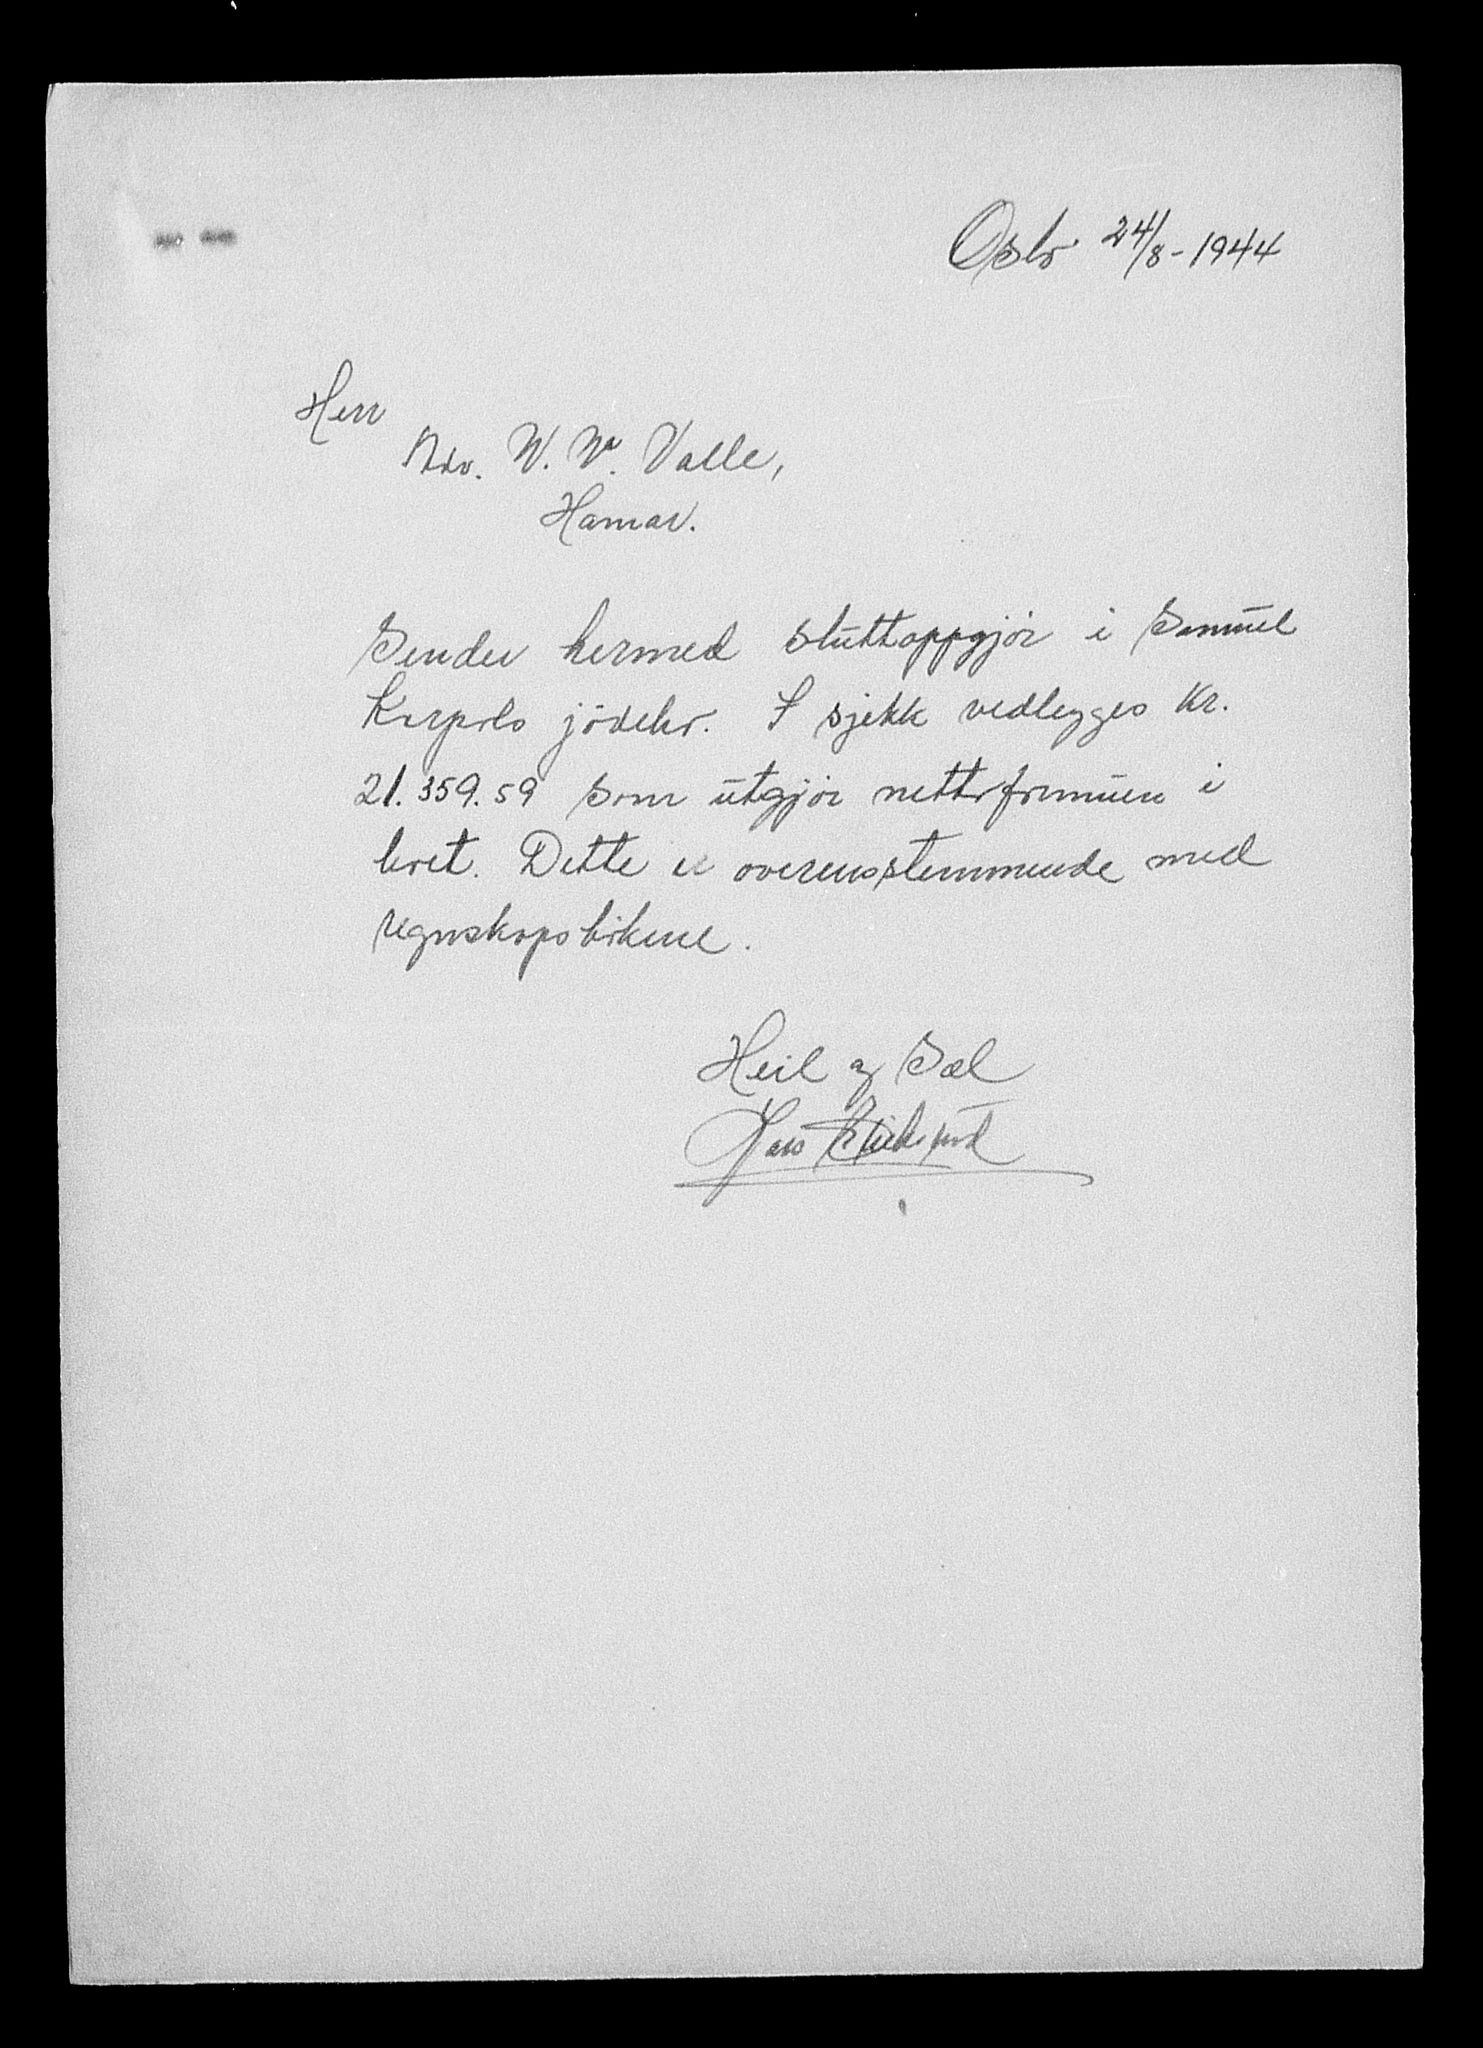 Oslo 24/8-1944
Herr
Adv. W. W. Valle,
Hamar.
Sender hermed sluttoppgjør i Samuel
Karpols jødebo. I sjekk vedlegges Kr.
21.359.59 som utgjør nettoformuen i
boet. Dette er overensstemmende med
regnskapsbøkene.
Heil og Sæl